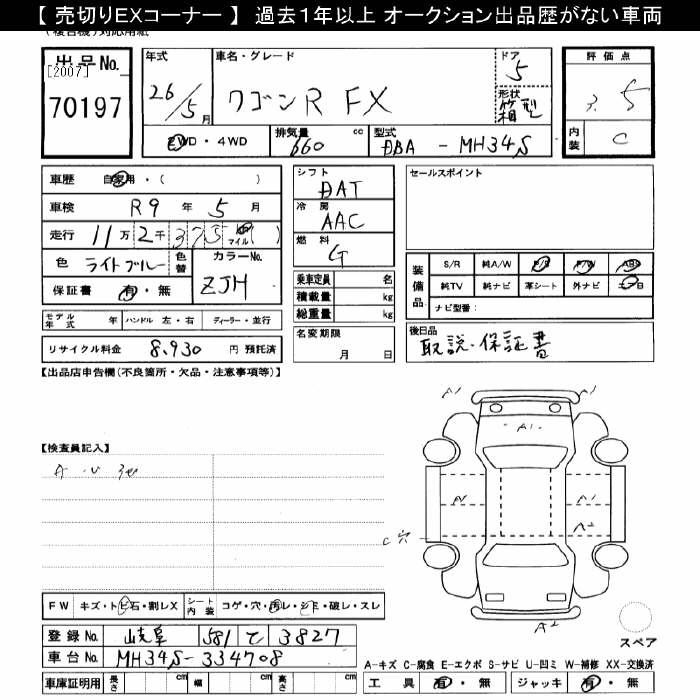 【 売切りEXコーナー 】 過去１年以上 オークション出品歴がない車両
出品No.
[2007]
70197
年式
26/5月
車名・グレード
ワゴンR FX
ドア
5
形状
箱型
評価点
3.5
内装
C
2WD・4WD
排気量 cc
660
型式
DBA - MH34S
車歴 自家用・( )
車検 R9 年 5 月
走行 11万 2千 375 km マイル ( )
色 ライトブルー 色替
カラーNo.
ZJH
保証書 有・無
シフト
DAT
冷房
AAC
燃料
G
乗車定員 名
積載量 kg
総重量 kg
セールスポイント
装備品
S/R 純A/W P/S P/W ABS
純TV 純ナビ 革シート 外ナビ エアB
ナビ型番:
モデル年式 年 ハンドル 左・右 ディーラー・並行
リサイクル料金 8,930 円 預託済
名変期限
月 日
後日品
取説・保証書
【出品店申告欄(不良箇所・欠品・注意事項等)】
【検査員記入】
A・U
A1 A1
A1
A1 A1
A2
C穴
A2
FW キズ・トビ石・割レX シート内装 コゲ・穴・汚レ・シミ・破レ・スレ
登録No. 岐阜 581 て 3827
車台No. MH34S-334708
車庫証明用 長さ cm 幅 cm 高さ cm
スペア
A-キズ C-腐食 E-エクボ S-サビ U-凹ミ W-補修 XX-交換済
工具 有・無 ジャッキ 有・無